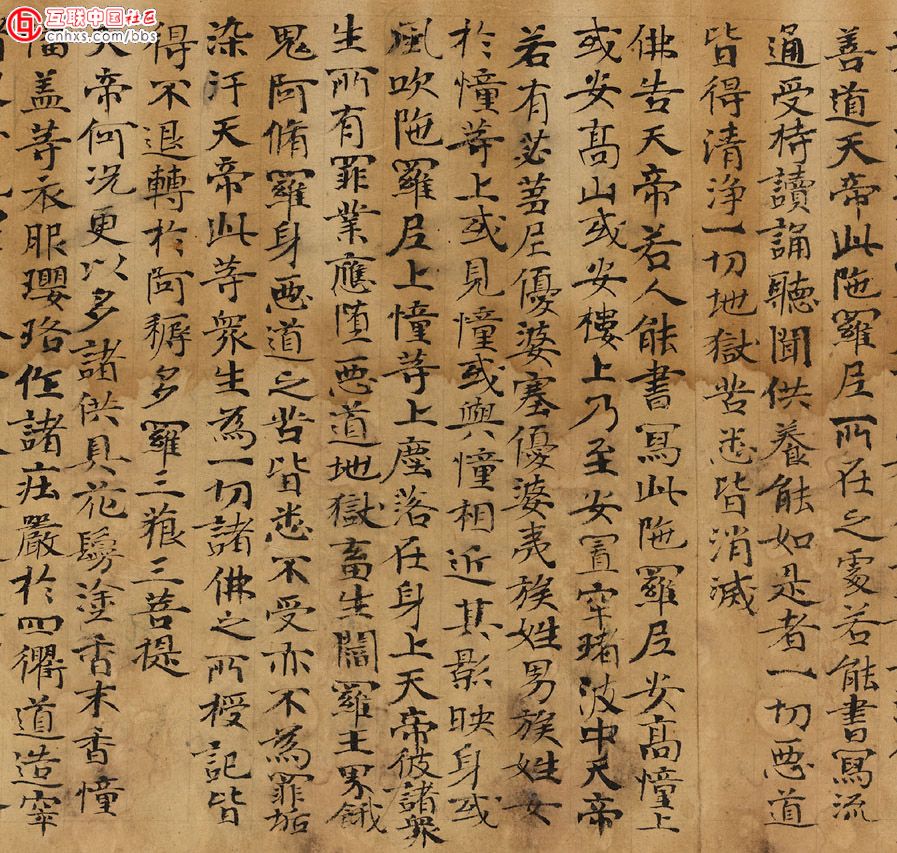 互联中国社区
cnhxs.com/bbs
善道天帝此陁羅尼所在之處若能書寫流
通受持讀誦聽聞供養能如是者一切惡道
皆得清淨一切地獄苦悉皆消滅
佛告天帝若人能書寫此陁羅尼安高幢上
或安高山或安樓上乃至安置窣堵波中天帝
若有苾蒭尼優婆塞優婆夷族姓男族姓女
於幢等上或見幢或與幢相近其影映身或
風吹陁羅尼上幢等上塵落在身上天帝彼諸衆
生所有罪業應墮惡道地獄畜生閻羅王界餓
鬼阿脩羅身惡道之苦皆悉不受亦不為罪垢
染汙天帝此等衆生為一切諸佛之所授記皆
得不退轉於阿耨多羅三藐三菩提
天帝何況更以多諸供具花鬘塗香末香幢
幡盖等衣服瓔珞作諸莊嚴於四衢道造窣